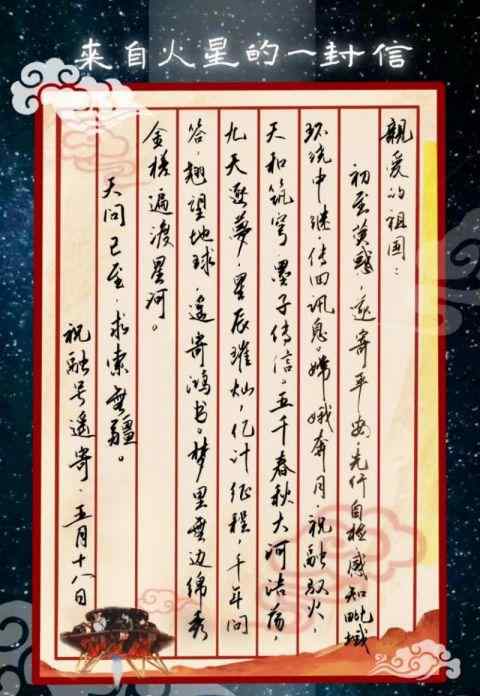 來自火星的一封信
親爱的祖国：
初至荧惑，遥寄平安。感知
环绕中继，传回讯息。嫦娥奔月，祝融驭火，
天和筑穹，墨子传信。五千春秋大河浩荡，
九天逐夢，星辰璀灿，亿计征程，千年问
答，翘望地球，遥寄鸿书。梦里無边锦秀
金槎遍渡星河。
天问已至，求索無疆。
祝融号遥寄·五月十八日